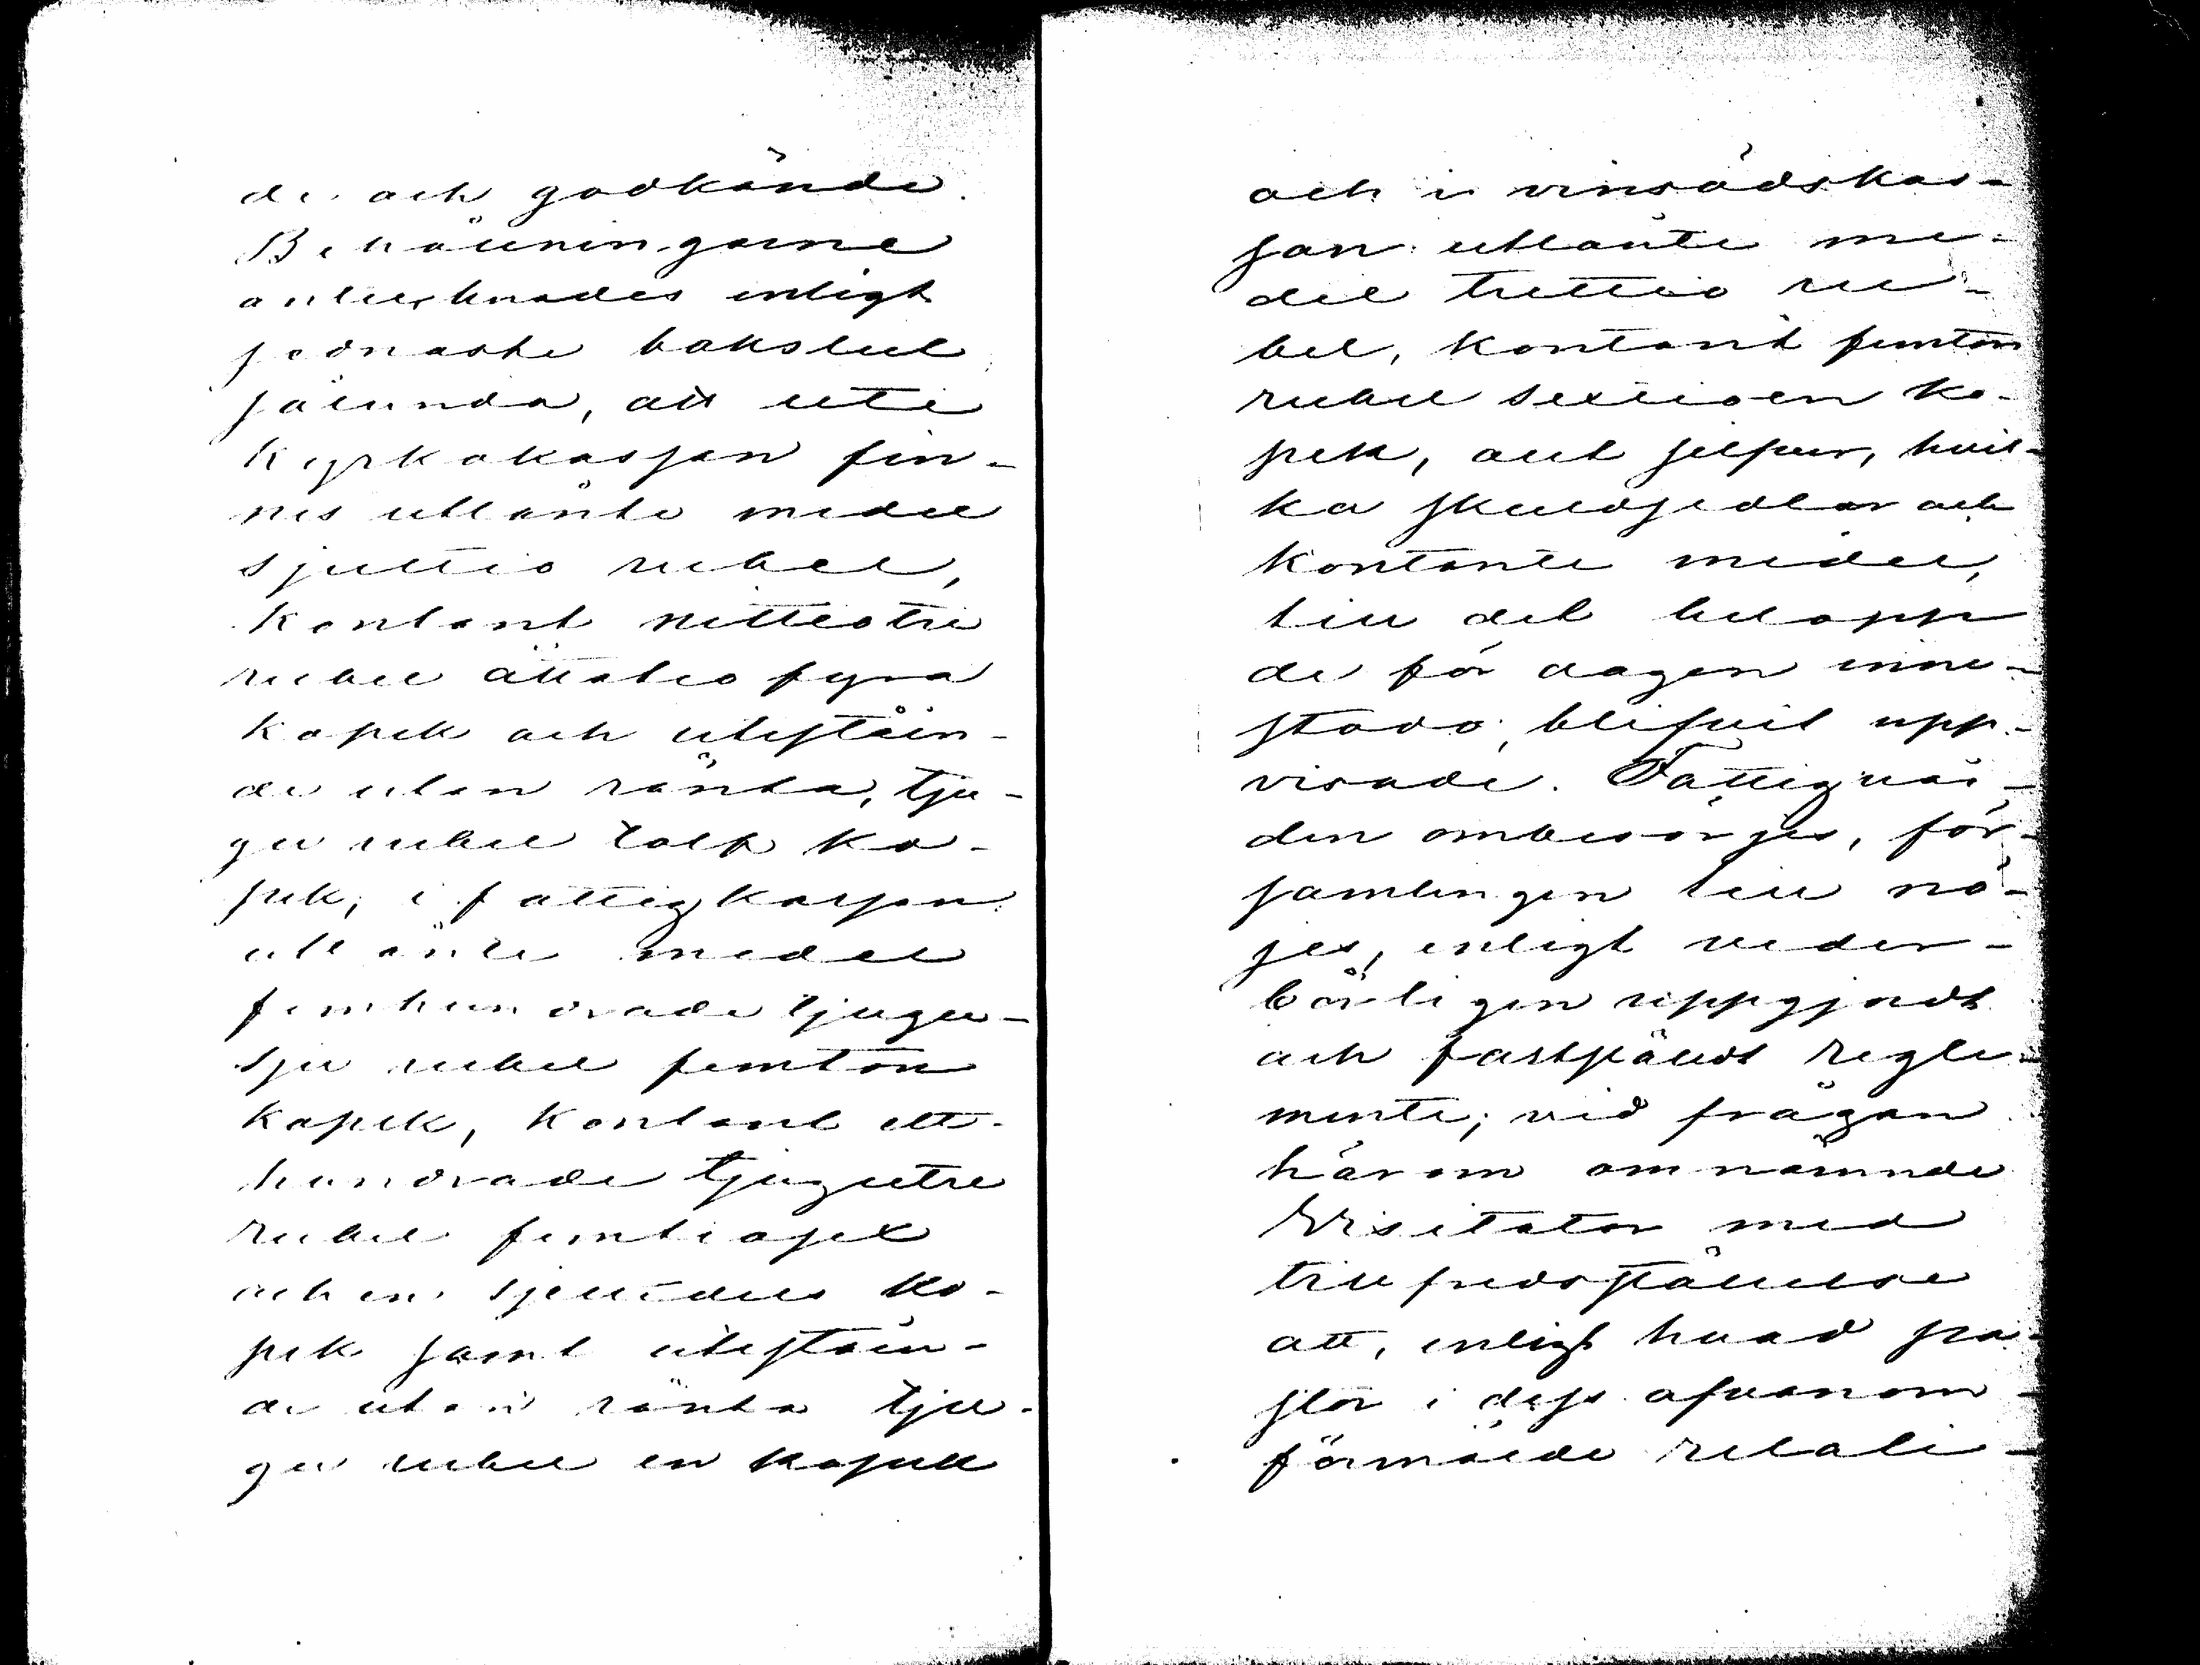 de och godkände.
Behållningarne
antecknades enligt
sednaste bokslut
sålunda, att uti
Kyrkokassan fin-
nes utlånte medel
sjuttio rubel,
Kontant nittiotre
rubel åttatio fyra
kopek och uteståen-
de utan ränta, tju-
gu rubel tolf ko-
pek, i fattigkassan
utlånte medel
femhundrade tjugu-
sju rubel femton
kopek, Kontant ett-
hundrade tjugutre
rubel femtiosex
och en sjundels ko-
pek samt uteståen-
de utan ränta tju-
gu rubel en kopek
och i vinsådskas-
san utlånte me-
del trettio ru-
bel, kontant femton
rubel sextioen ko-
pek, allt silfver, hvil-
ka skuldsedlar och
kontante medel,
till det belopp
de för dagen inne-
stodo, blifvit upp-
visade. Fattigvår-
den ombesörjes, för-
samlingen till nö-
jes, enligt veder-
börligen uppgjordt
och fastställdt regle-
mente; vid frågan
härom omnämnde
Visitator med
tillfredsställelse
att, enligt hvad pa-
stor i dess ofvanom-
förmälde relati-